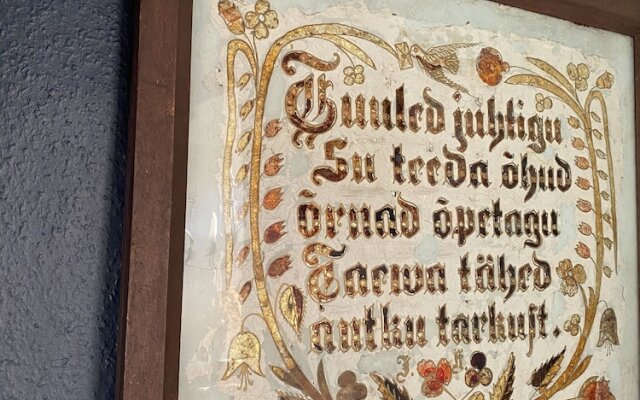 Tuuled juhtigu
Su teeda õhud
õrnad õpetagu
Taewa tähed
antku tarkust.
J. K.